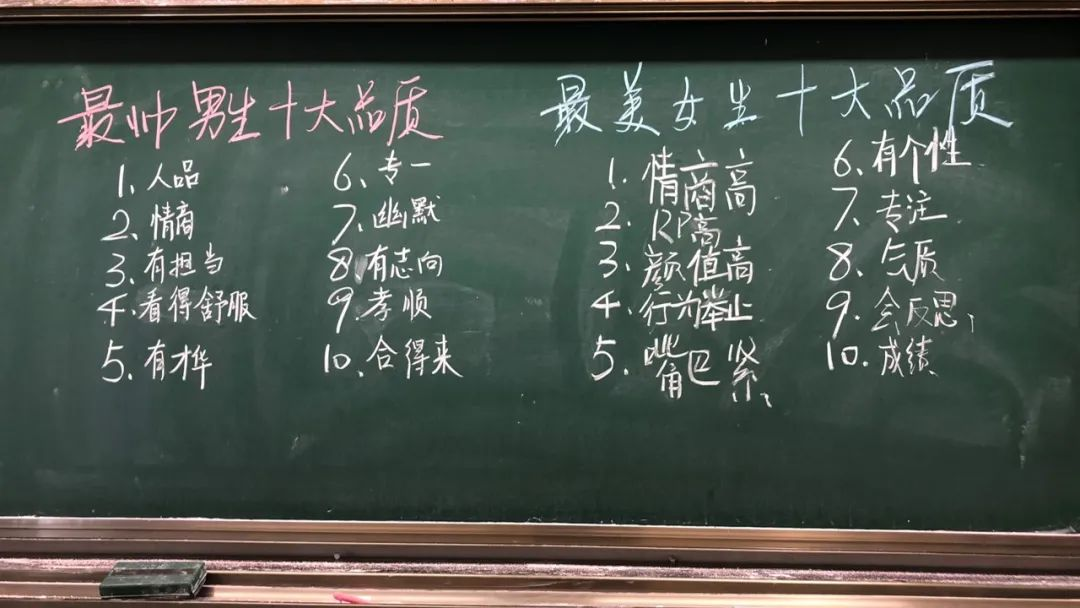 最帅男生十大品质
1、人品
2、情商
3、有担当
4、看得舒服
5、有才华
6、专一
7、幽默
8、有志向
9、孝顺
10、合得来
最美女生十大品质
1、情商高
2、RP高
3、颜值高
4、行为举止
5、嘴巴紧
6、有个性
7、专注
8、气质
9、会反思
10、成绩